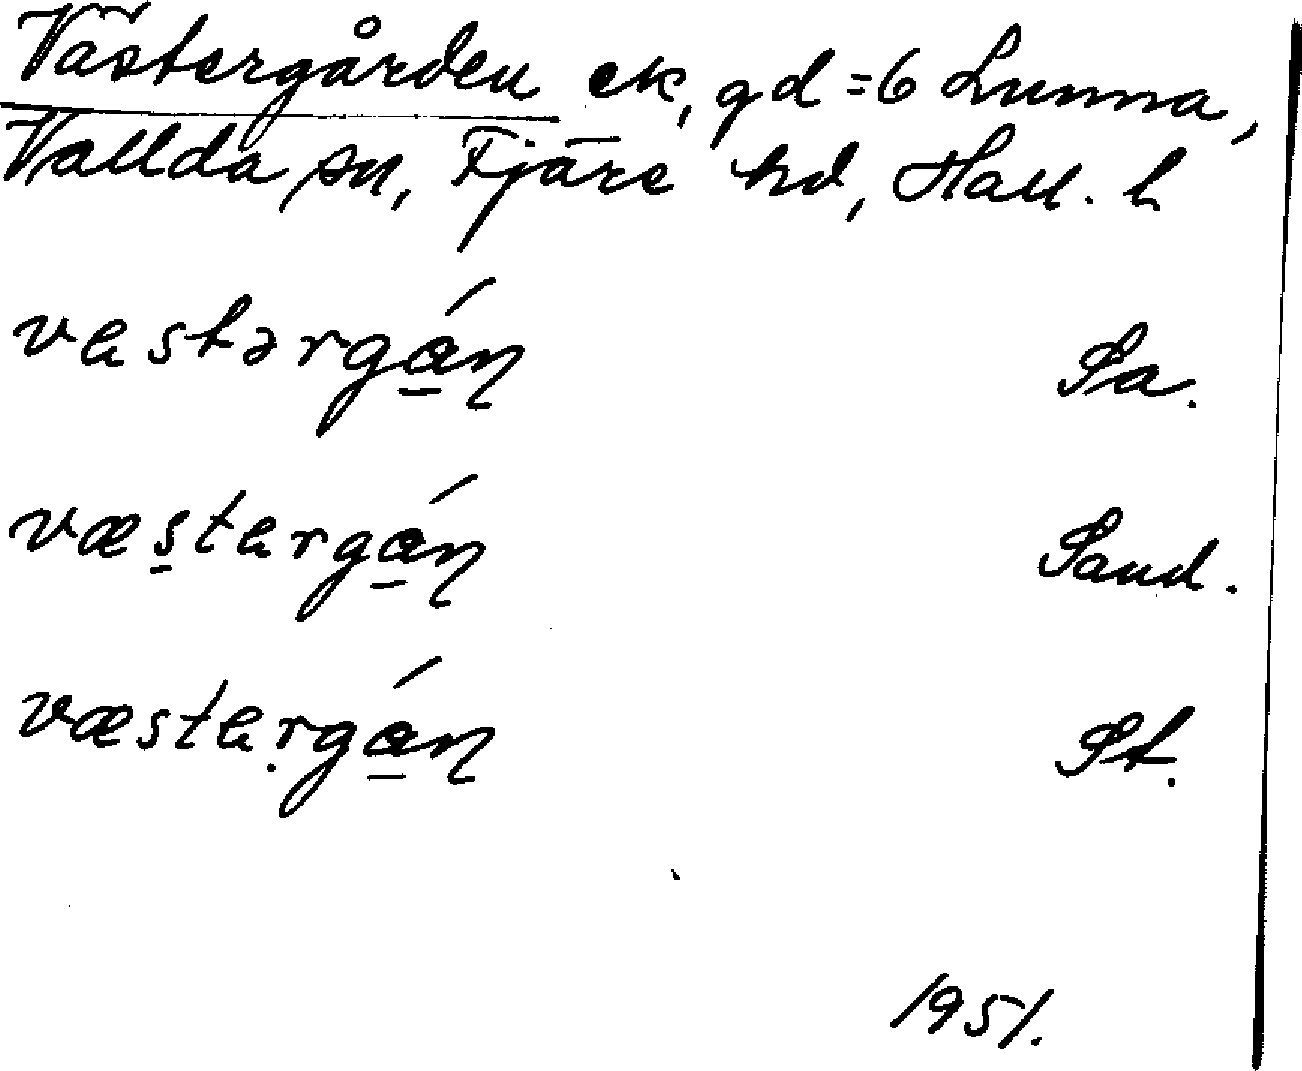 Västergården ek, gd =6 Lunna,
Vallda sn, Fjäre hd, Hall. l
vastərgá̱ņ Sa.
væs̱targá̱ņ Sand.
væstaṛgá̱ņ St.
1951.